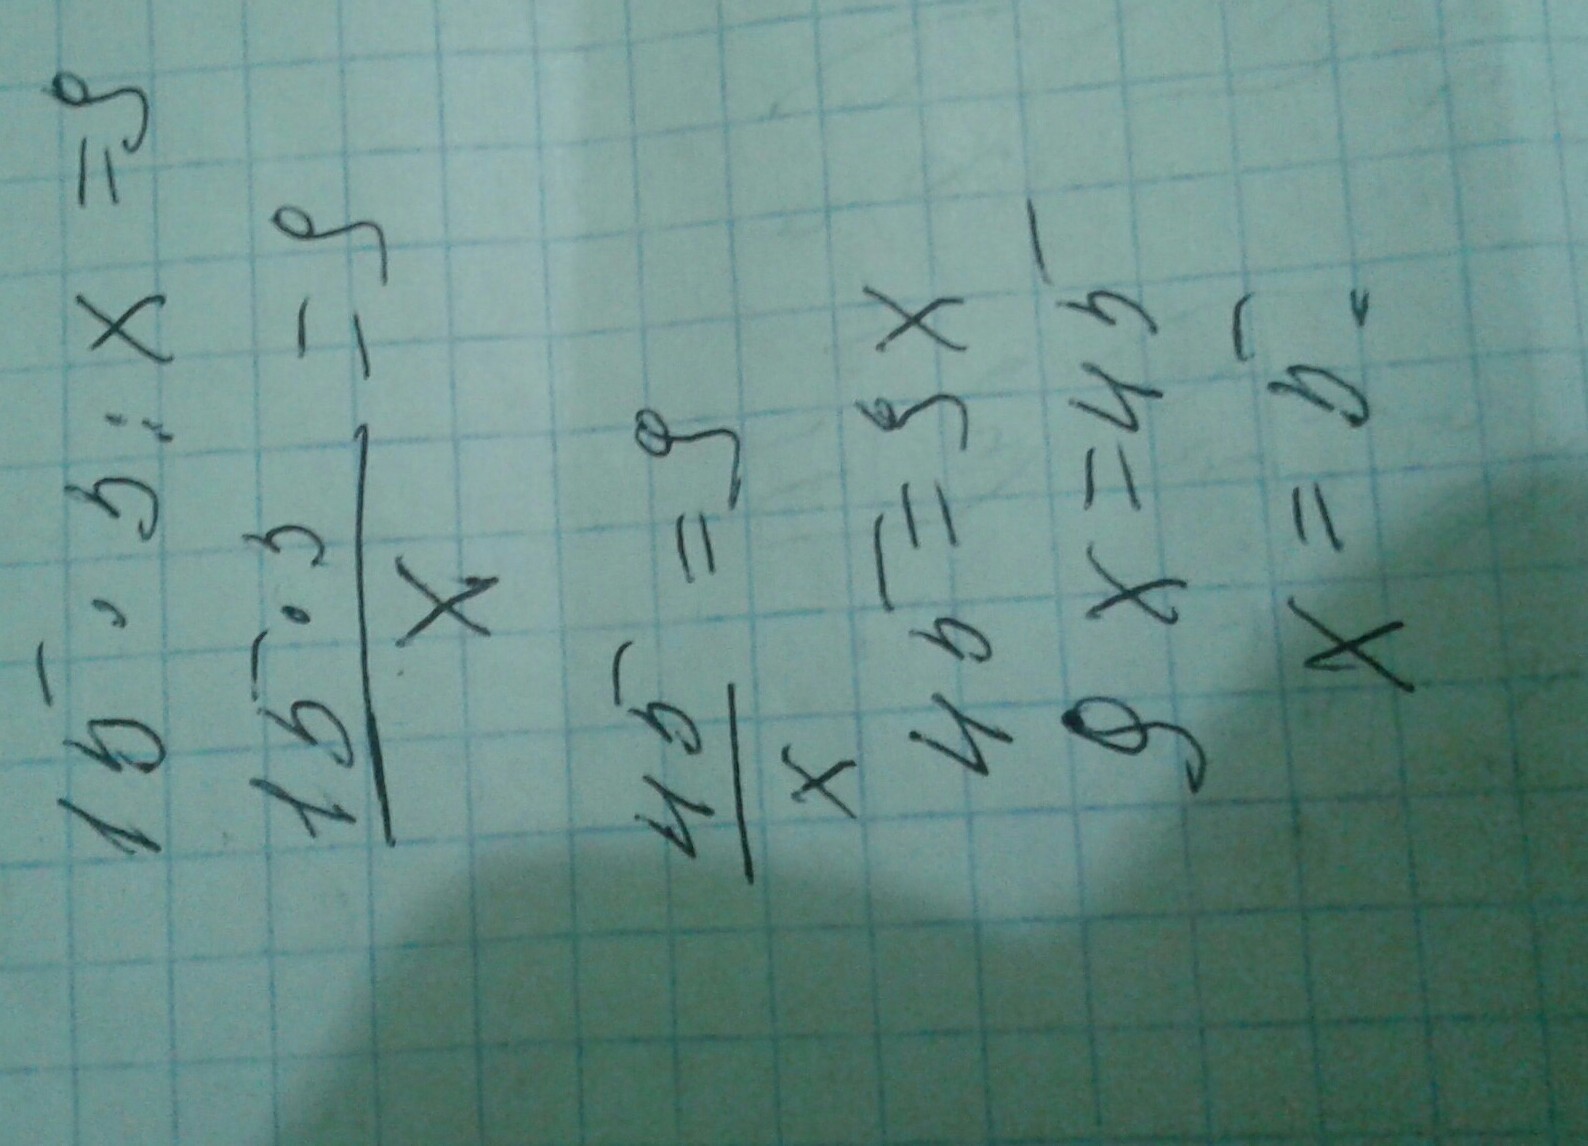 15 · 3 : x = 9
15 · 3 / x = 9
45 / x = 9
45 = 9x
9x = 45
x = 5.